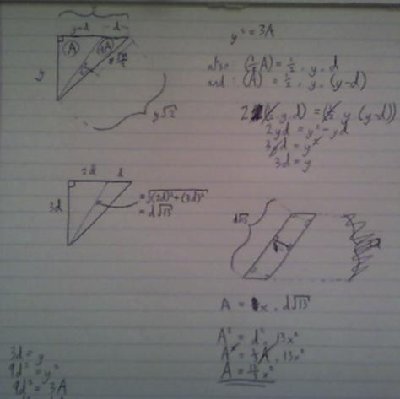 y-d d
A ½A
y
y√2
y² = 3A
also: (½A) = ½ . y . d
and: (A) = ½ . y . (y-d)
2(½.y.d) = (½.y.(y-d))
2yd = y² - yd
3yd = y²
3d = y
2d d
3d
= √(2d)² + (3d)²
= d√13
d√13
A = x . d√13
A² = d² . 13x²
3d = y
9d² = y²
9d² = 3A